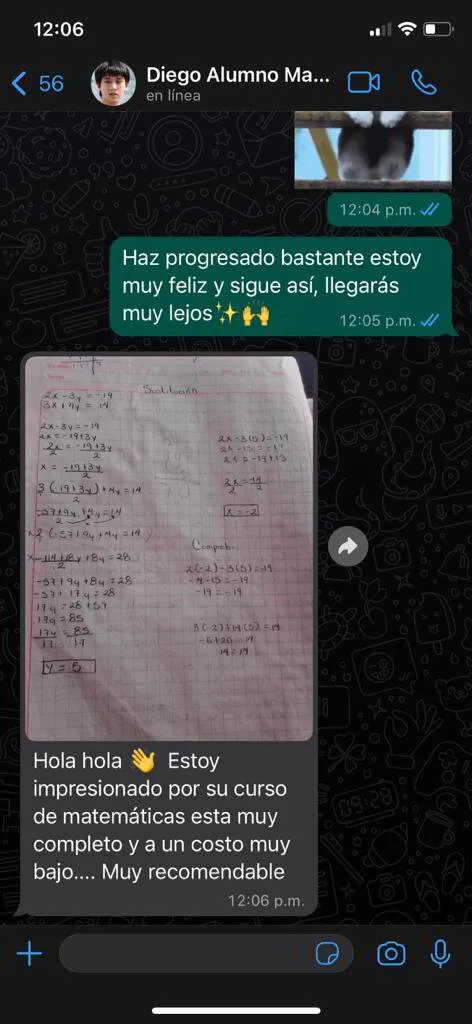 12:06
56
Diego Alumno Ma...
en línea
12:04 p.m.
Haz progresado bastante estoy
muy feliz y sigue así, llegarás
muy lejos✨🙌
12:05 p.m.
Sustitución
2x - 3y = -19
3x + 4y = 14
2x - 3y = -19
2x = -19+3y
2x = -19+3y
2 2
x = -19+3y
2
3(-19+3y)+4y=14
2
-57+9y+4y=14
2
-57+9y+8y=28
-57+17y=28
17y=28+57
17y=85
17y = 85
17 17
y = 5
2x-3(5)=-19
2x-15=-19
2x=-19+15
x=-2
Comprob.
2(-2)-3(5)=-19
-4-15=-19
-19=-19
-6+20=14
14=14
Hola hola 👋 Estoy
impresionado por su curso
de matemáticas esta muy
completo y a un costo muy
bajo.... Muy recomendable
12:06 p.m.